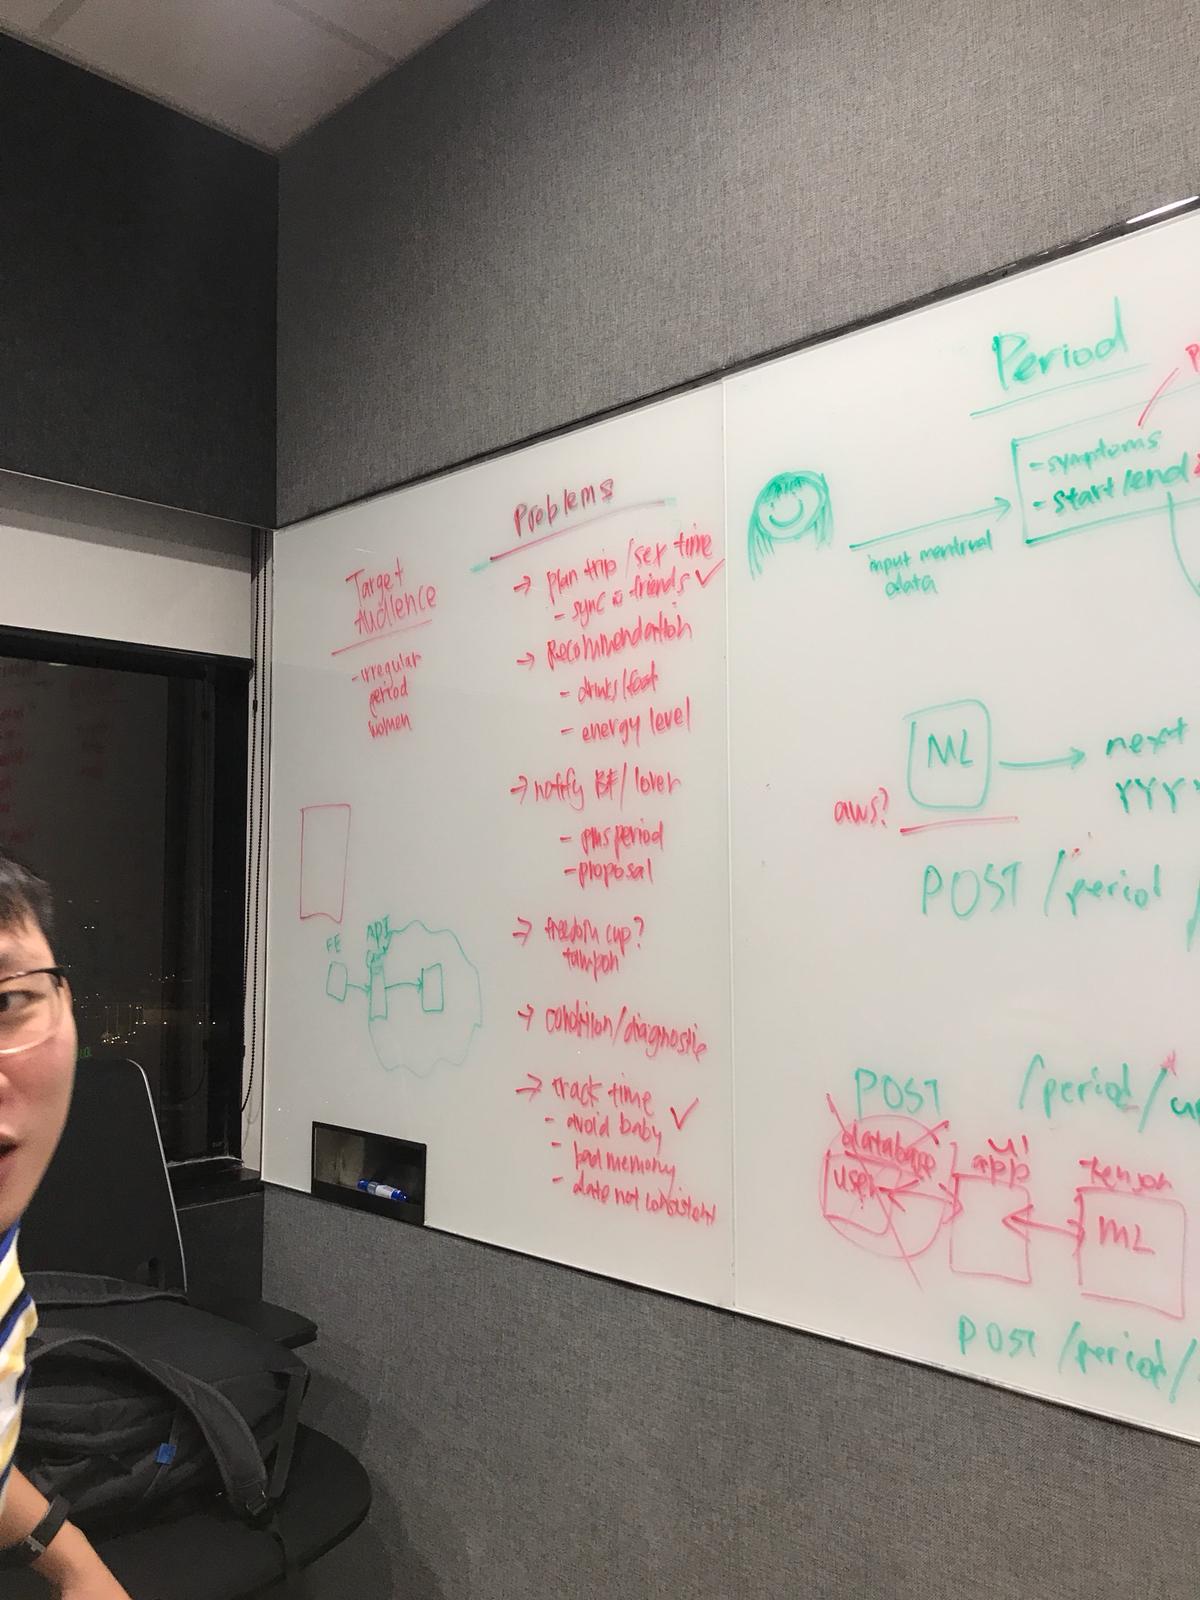 Target
Audience
- irregular
period
women
FE
API
Problems
→ plan trip / sex time
- sync w friends ✓
→ Recommendation
- drinks/food
- energy level
→ notify BF/ lover
- pms period
- proposal
→ freedom cup?
tampon
→ condition/diagnostic
→ track time ✓
- avoid baby
- bad memory
- date not consistent
Period
- symptoms
- start/end
input menstrual
data
ML → next
aws?
POST /period /
POST /period/
database
user
UI
app
ML
POST /period/